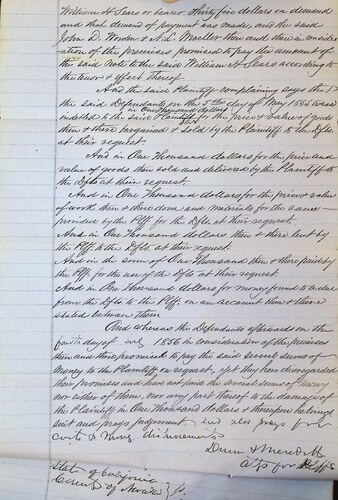 William H. Sears or bearer Thirty five dollars on demand
and that demand of payment was made, and the said
John D. Worden & A. L. Moeller then and there in consider
ation of the premises promised to pay the amount of
the said note to the said William H. Sears according to
the tenor & effect thereof
And the said Plaintiff complaining says that
the said Defendants on the day of May 1856 were
in One Thousand dollars
indebted to the said Plaintiff for the price & value of goods
then & there bargained & sold by the Plaintiff to the Dfts
at their request.
And in One Thousand dollars for the price and
value of goods then sold and delivered by the Plaintiff to
the Dfts at their request.
And in One Thousand dollars for the price & value
of work then & there done and materials for the same
provided by the Plff. for the Dfts at their request.
And in One Thousand dollars then & there lent by
the Plff. to the Dfts. at their request.
And in the sum of One Thousand then & there paid by
the Plff. for the use of the Dfts at their request
And in One Thousand dollars for money found to be due
from the Dfts. to the Plff. on an account then & there
stated between them
And whereas the Defendants afterwards on the
day of July 1856 in consideration of the premises
then and there promised to pay the said several sums of
money to the Plaintiff on request, yet they have disregarded
their promises and have not paid the several sums of money
nor either of them, nor any part thereof to the damage of
the Plaintiff in One Thousand dollars & therefore he brings
suit and prays judgement and also prays for
costs &
& Meredith
Attys for Plffs
State of California
County of Nevada } ss.